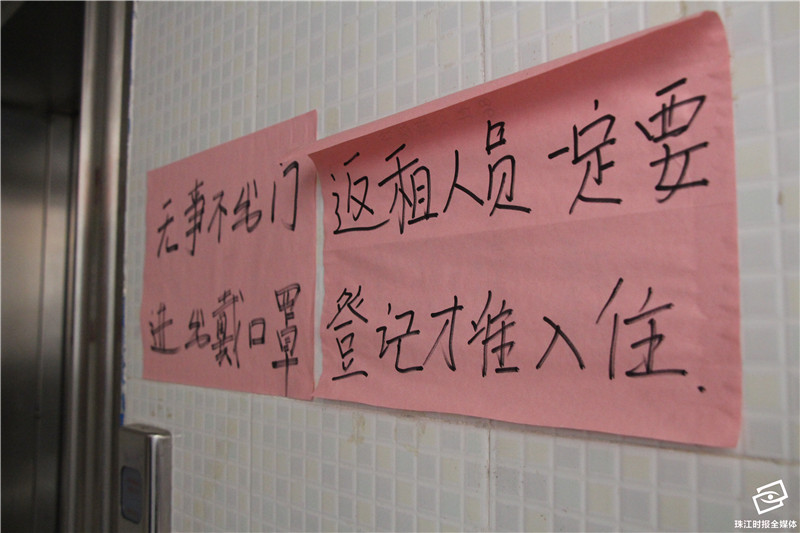 无事不出门
进出戴口罩
返租人员一定要
登记才准入住.
珠江时报全媒体